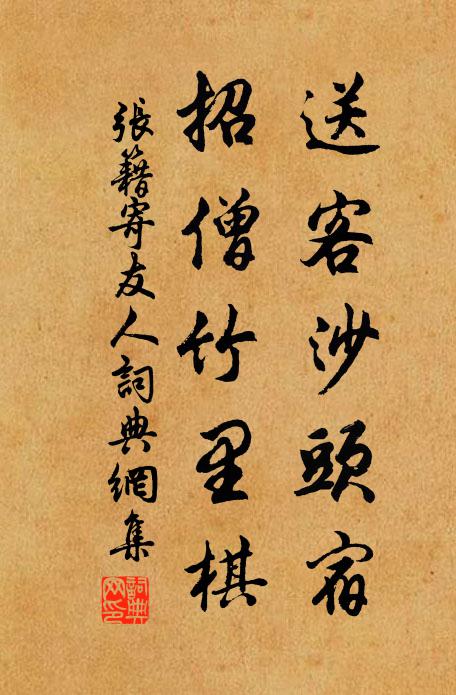 送客沙頭宿
招僧竹里棋
張籍寄友人詞典網集
詞典網印